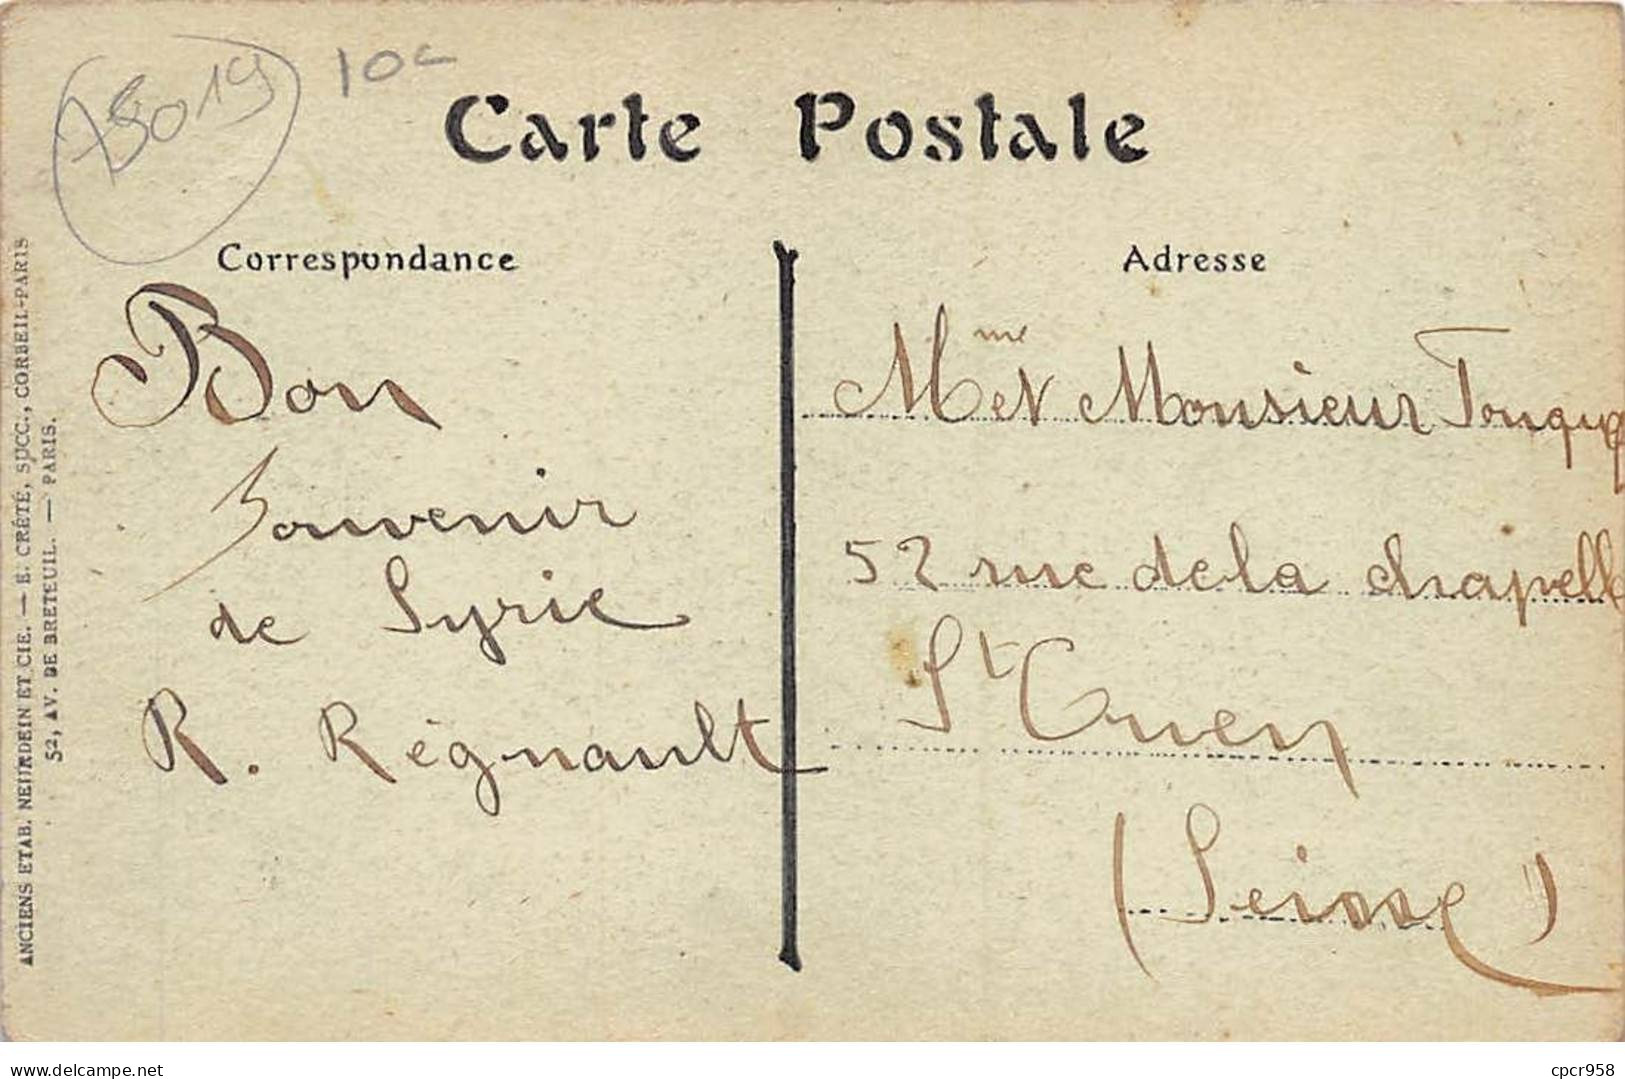 75019
10c
Carte Postale
Correspondance
Adresse
Bon
Souvenir
de Syrie
R. Régnault
Mme et Monsieur
52 rue de la chapelle
St Ouen
(Seine)
ANCIENS ETAB. NEURDEIN ET CIE. — E. CRÉTÉ, SUCC., CORBEIL-PARIS
52, AV. DE BRETEUIL. — PARIS.
www.delcampe.net
cpcr958